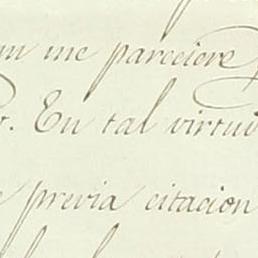 me pareciere
En tal virtu
previa citacion